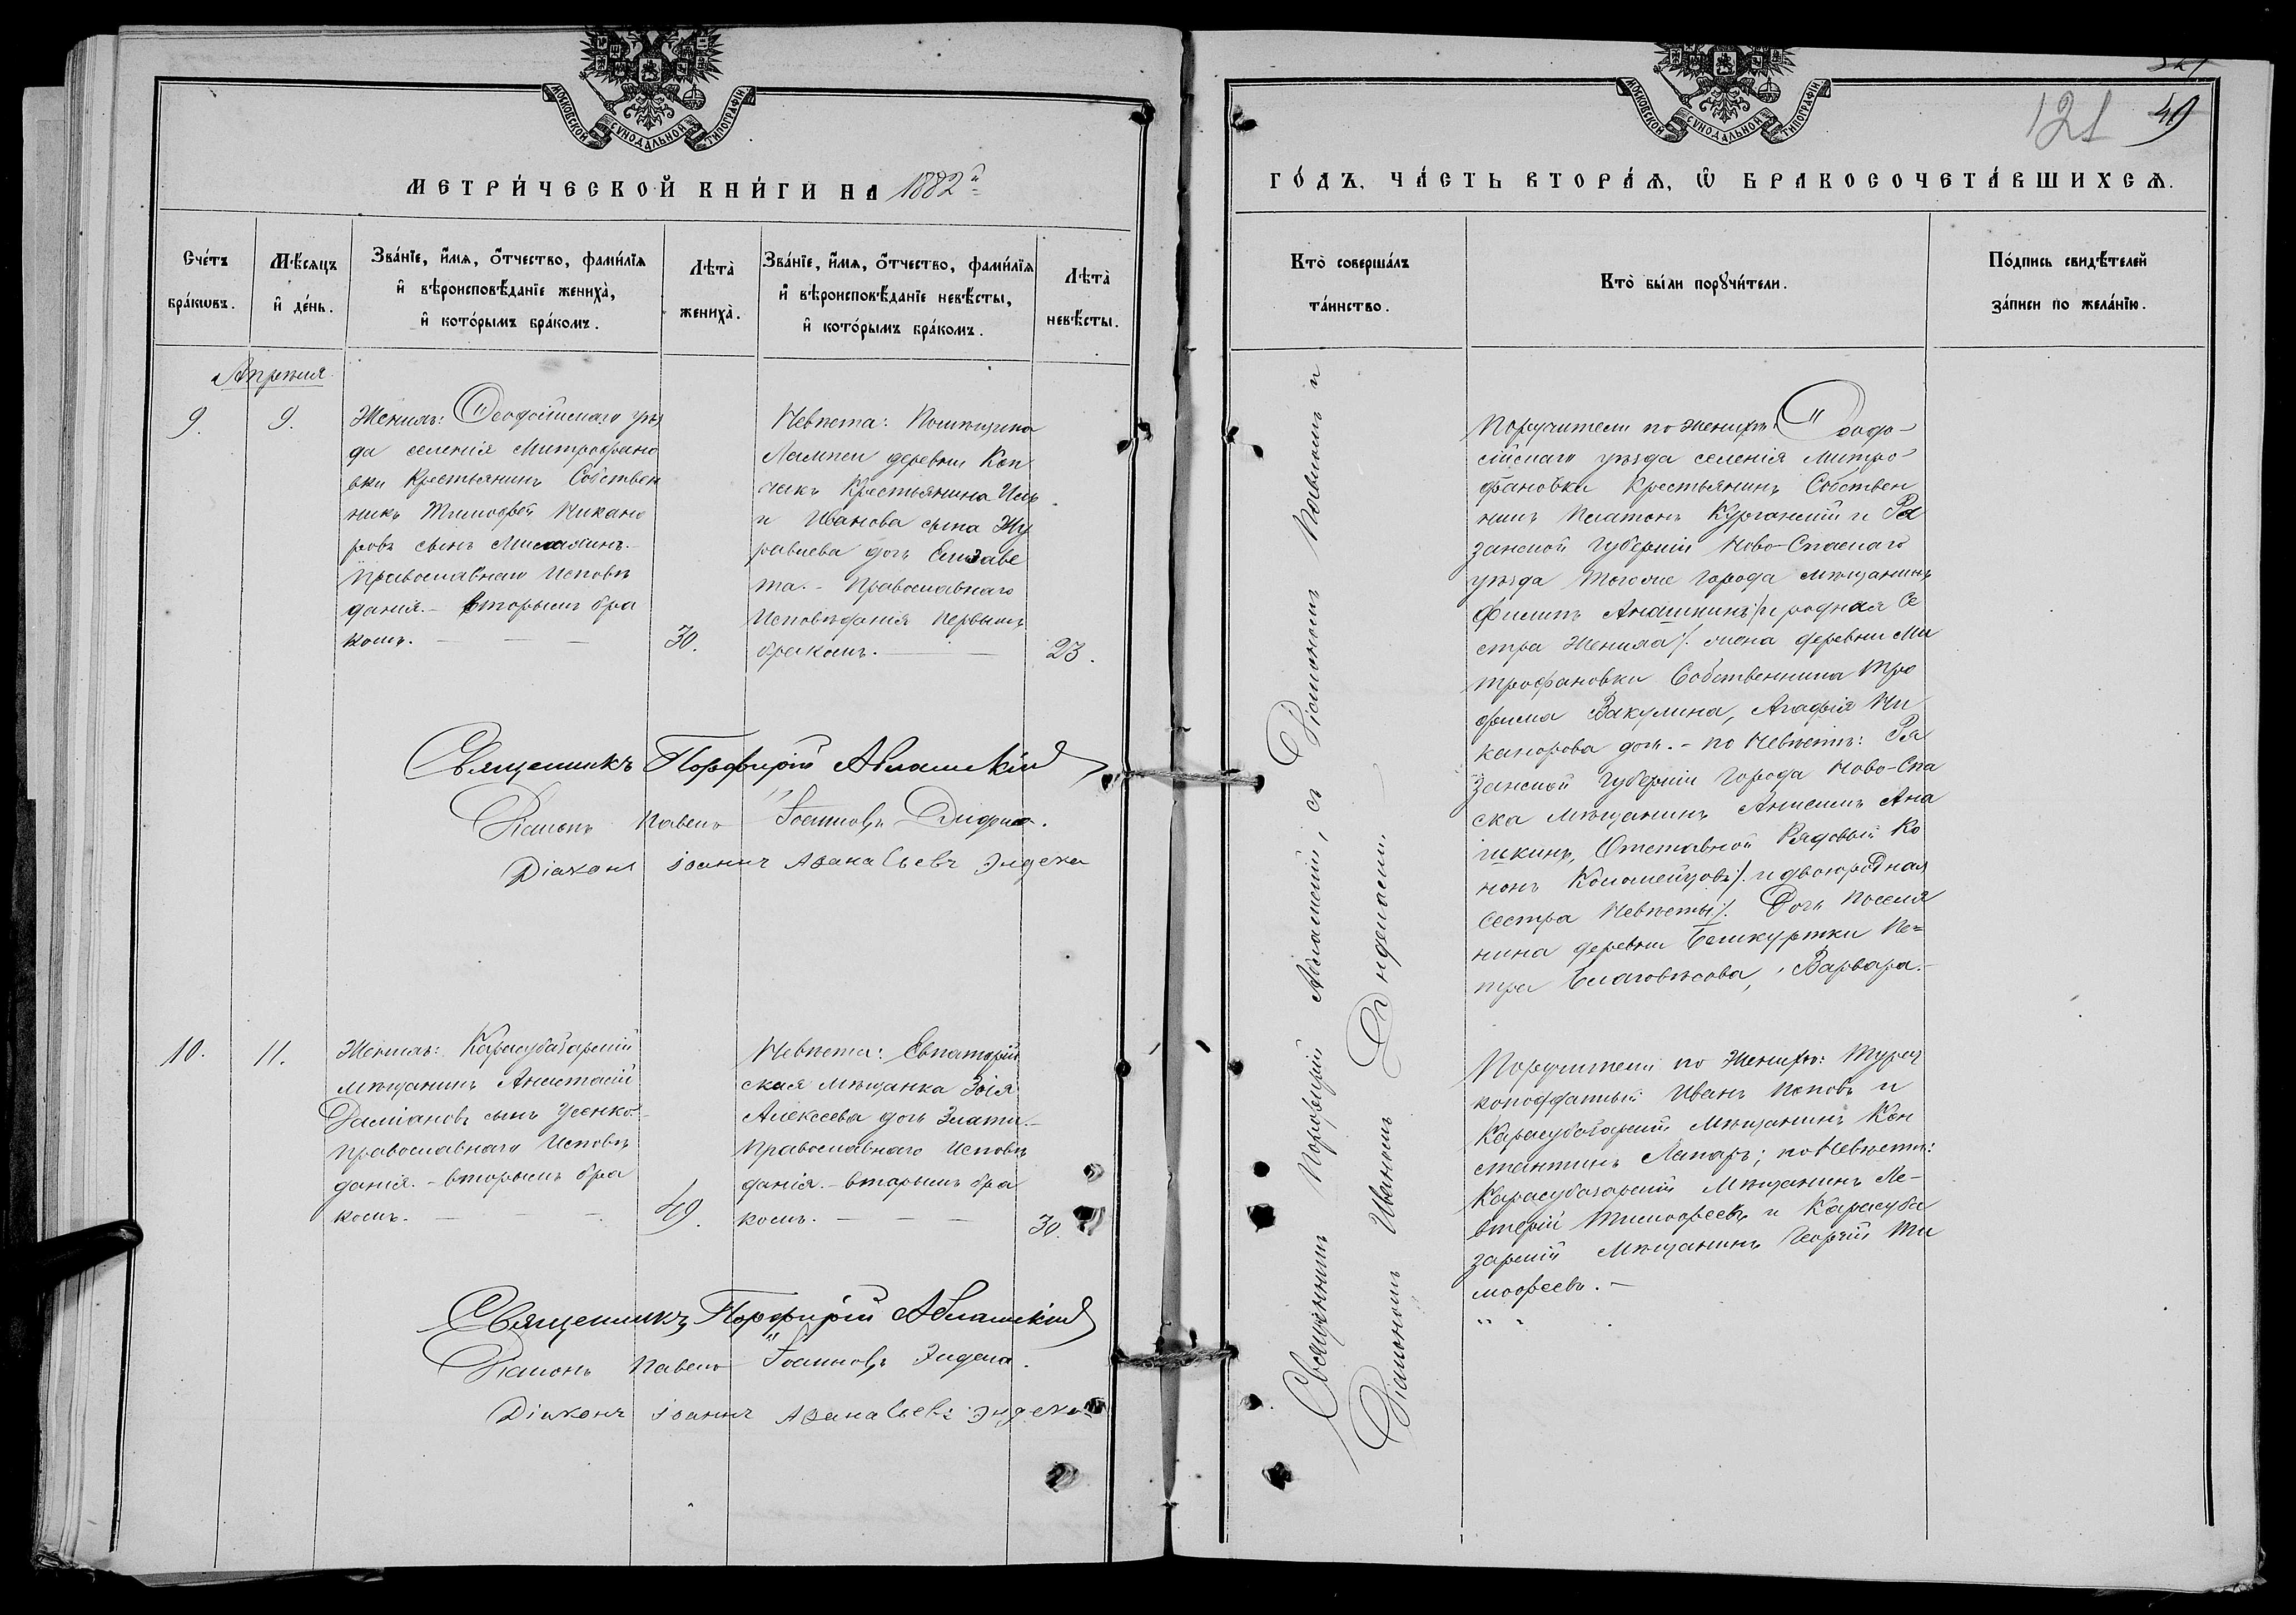 МОСКОВСКОЙ СѴНОДАЛЬНОЙ ТИПОГРАФІИ
МЕТРИ́ЧЕСКОЙ КНИ́ГИ НА 1882й
Сче́тъ бра́кѡвъ.
Мѣ́сяцъ и҆ де́нь.
Зва́нїе, и҆́мя, ѻ҆́тчество, фами́лїя
и҆ вѣроисповѣ́данїе жениха̀,
и҆ кото́рымъ бра́комъ.
Лѣта̀ жениха̀.
Зва́нїе, и҆́мя, ѻ҆́тчество, фами́лїя
и҆ вѣроисповѣ́данїе невѣ́сты,
и҆ кото́рымъ бра́комъ.
Лѣта̀ невѣ́сты.
Апрѣля
9.
9.
Женихъ: Ѳеодосійскаго уѣз
да селенія Митрофано
вки Крестьянинъ Собствен
никъ Тимофей Никано
ровъ сынъ
Православнаго Исповѣ
данія. – Вторымъ бра
комъ. – – –
30.
Невѣста:
деревни Коп
Крестьянина Иль
и Иванова сына Жу
равлева дочь Елизаве
та. – Православнаго
Исповѣданія Первымъ
бракомъ. –
23.
Священникъ Порфирій
Діаконъ Павелъ Іоанновъ
Діаконъ Іоаннъ Аѳанасьевъ Эндека
10.
11.
Женихъ: Карасубазарскій
мѣщанинъ Анастасій
Даміановъ сынъ Усенко –
Православнаго Исповѣ
данія. – вторымъ бра
комъ. – – –
49.
Невѣста: Евпаторій
ская мѣщанка Зоія
Алексеева дочь Злати. –
Православнаго Исповѣ
данія. – вторымъ бра
комъ. – – –
30.
Священникъ Порфирій
Діаконъ Павелъ Іоанновъ Эндека.
Діаконъ Іоаннъ Аѳанасьевъ Эндека
МОСКОВСКОЙ СѴНОДАЛЬНОЙ ТИПОГРАФІИ
121 49
ГО́ДЪ, ЧА́СТЬ ВТОРА́Я, Ѡ҆ БРАКОСОЧЕТА́ВШИХСЯ.
Кто̀ соверша́лъ
та́инство.
Кто̀ бы́ли порꙋчи́тели.
По́дпись свидѣ́телей
за́писи по жела́нїю.
Священникъ Порфирій съ Діакономъ Павломъ и
Діакономъ Иваномъ Эндекасъ.
Поручители по женихѣ: Ѳеодо-
сійскаго уѣзда селенія Митро-
фановка Крестьянинъ Собствен
никъ Платонъ Курганскій и Ря
занской Губерніи Ново-Спаскаго
уѣзда тогоже города мѣщанинъ
Филипъ Анашкинъ /: и родная Се
стра Жениха :/. жена деревни Ми
трофановки Собственника Тро
фима Вакулина, Агафія Ни
канорова дочь. – по Невѣстѣ: Ря
занской Губерніи города Ново-Спа
ска мѣщанинъ Анисимъ Ана
шкинъ, Отставной Рядовый Ко
нонъ Коломейцовъ /. и двоюродная
Сестра Невѣсты :/. Дочь Поселя
нина деревни
тра Варвара. –
Поручители по Женихѣ: Турец
коподданный Иванъ Поповъ и
Карасубазарскій Мѣщанинъ Кон
стантинъ Лапаръ; по Невѣстѣ:
Карасубазарскій Мѣщанинъ Ле-
втерій Тимофеевъ и Карасуба
зарскій Мѣщанинъ Георгій Ти
мофеевъ. –